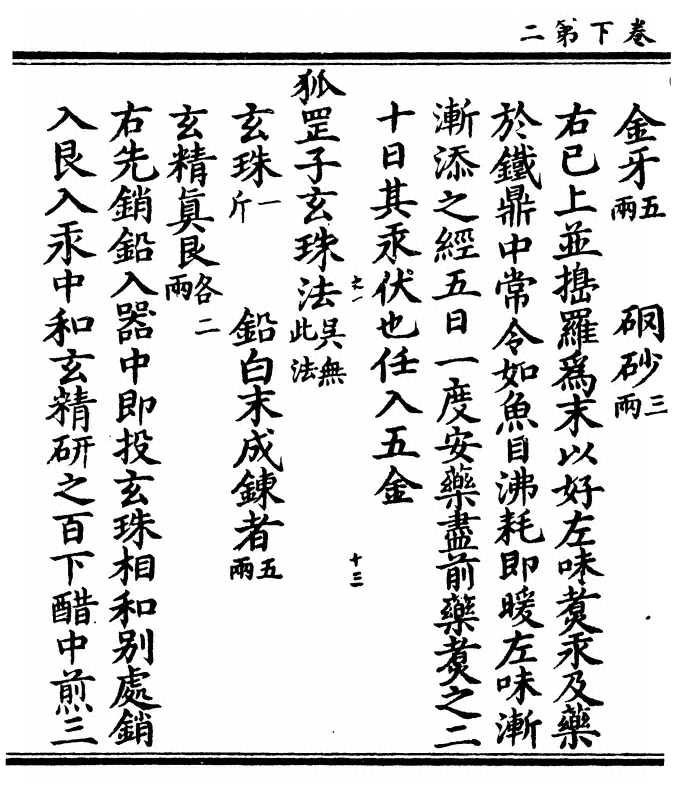 卷下第二
金牙五兩　硇砂三兩
右已上並擣羅爲末以好左味煑汞及藥
於鐵鼎中常令如魚目沸耗即暖左味漸
漸添之經五日一度安藥盡前藥煑之二
十日其汞伏也任入五金
之一　十三
狐罡子玄珠法吳無此法
玄珠一斤　鉛白末成鍊者五兩
玄精眞艮各二兩
右先銷鉛入器中即投玄珠相和别處銷
入艮入汞中和玄精研之百下醋中煎三